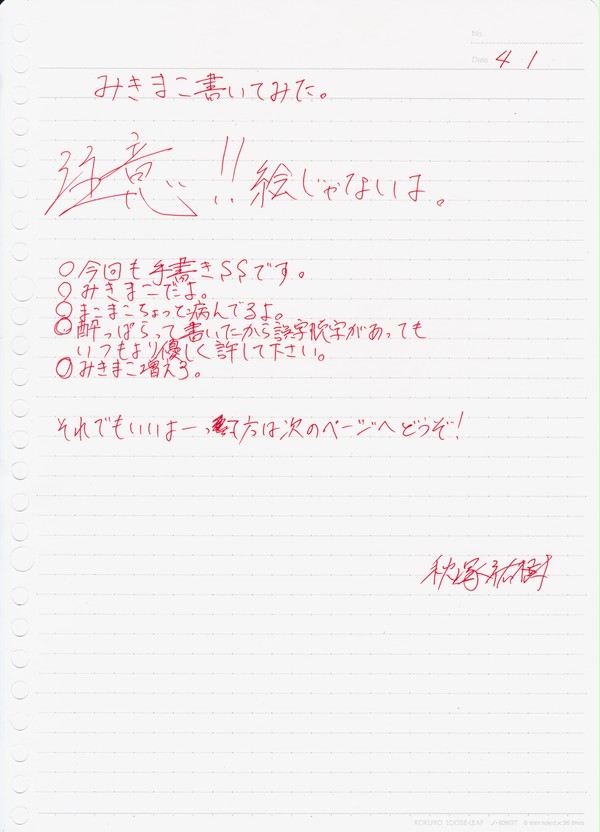 No.
Date 4 1
みきまこ書いてみた。
注意!!絵じゃないは。
○今回も手書きSSです。
○みきまこだよ。
○まこまこちょっと病んでるよ。
○酔っぱらって書いたから誤字脱字があっても
いつもより優しく許して下さい。
○みきまこ増えろ。
それでもいいはーっ方は次のページへどうぞ!
秋塚祐樹
KOKUYO LOOSE-LEAF 6 mm ruled × 36 lines